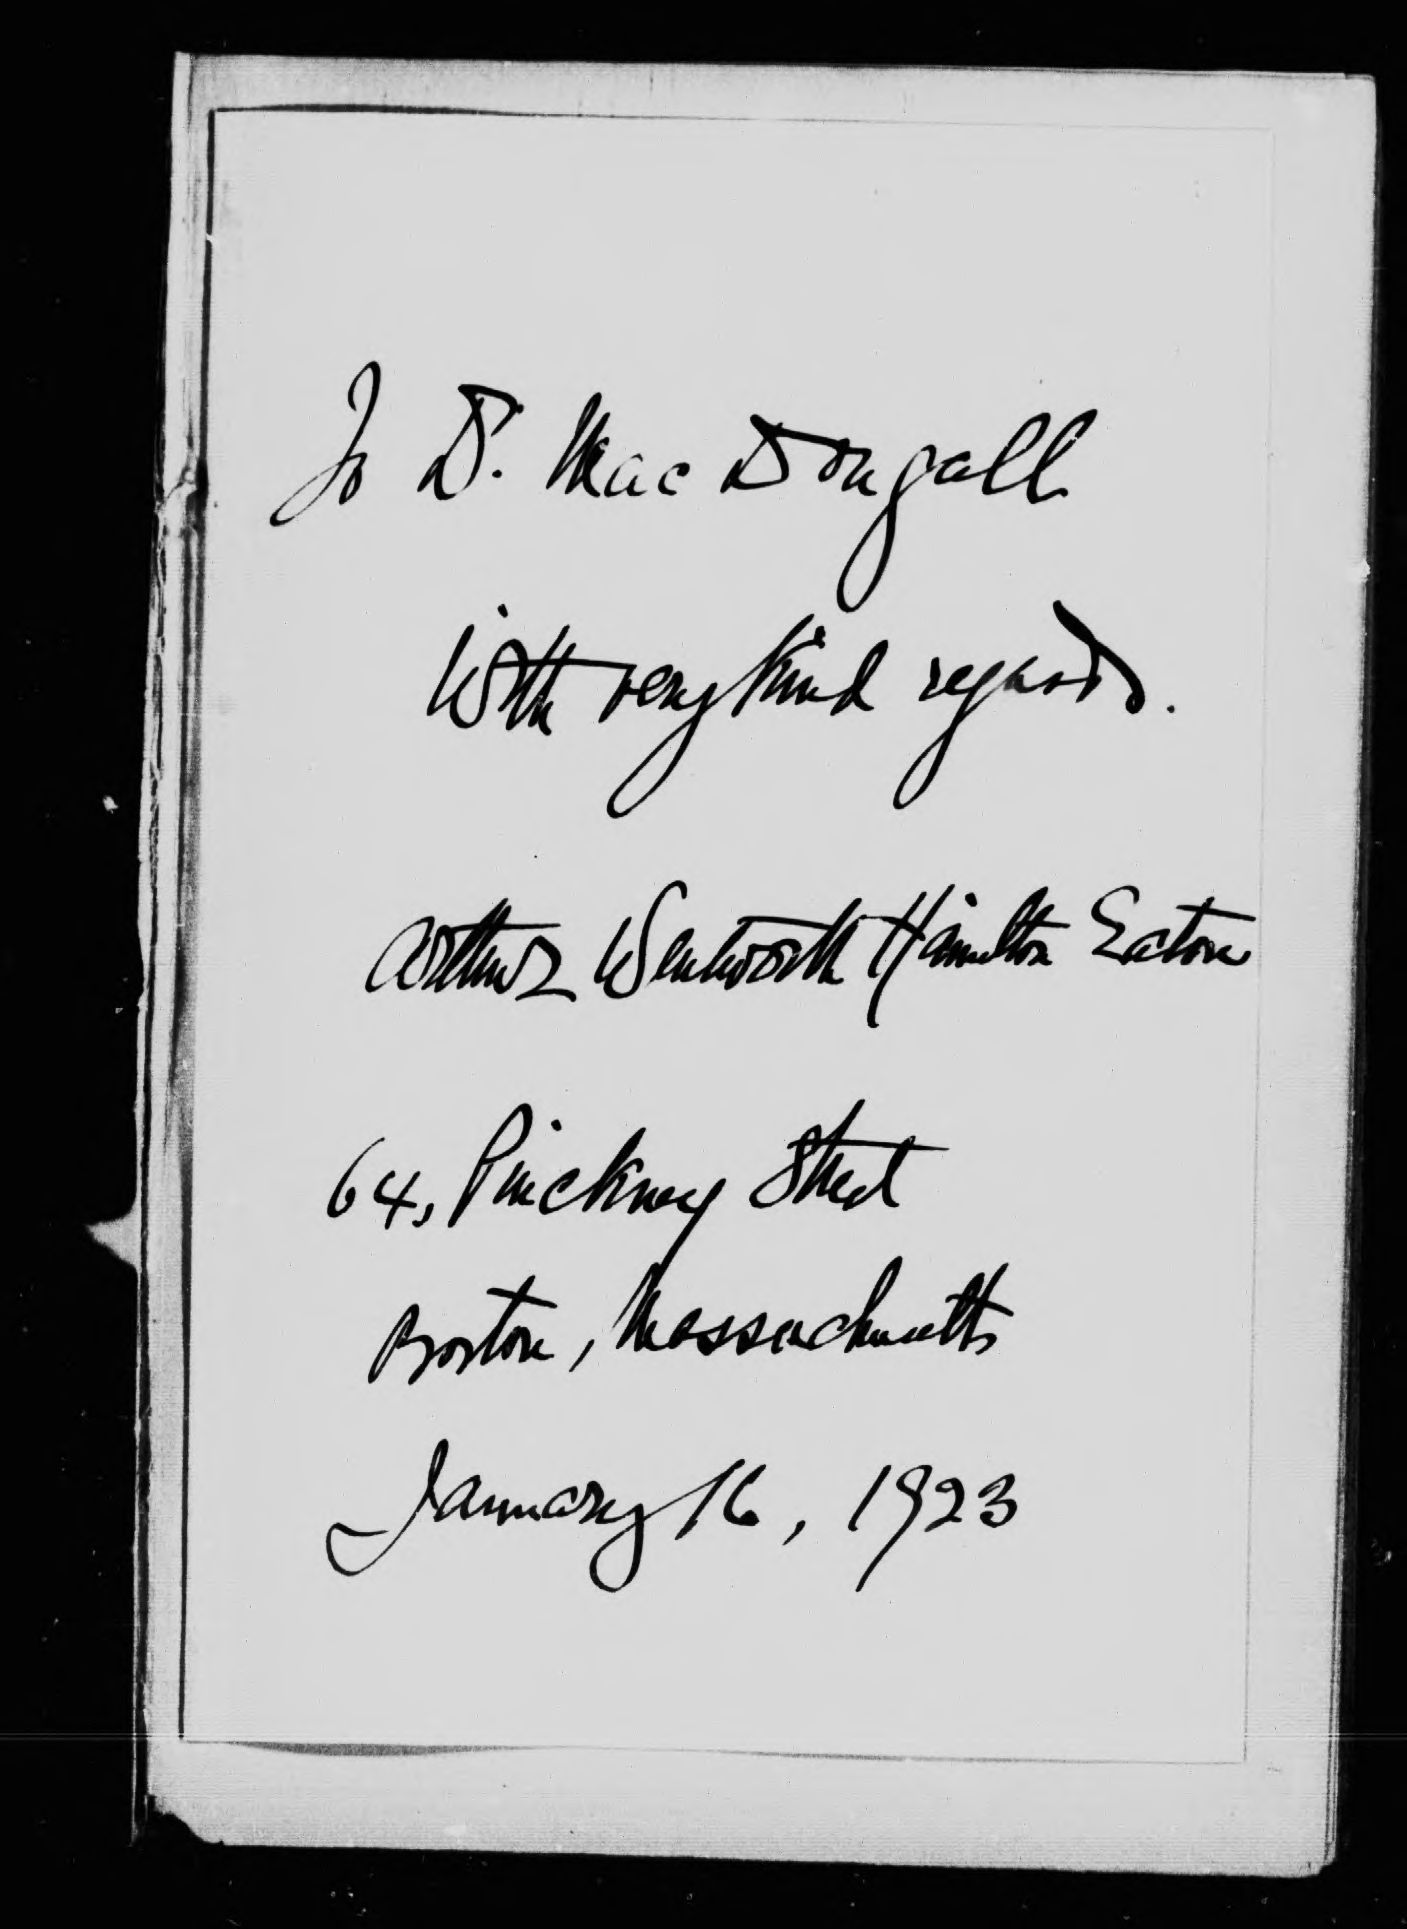 To Dr. MacDougall
With very kind regards.
Arthur Wentworth Hamilton Eaton
64, Pinckney Street
Boston, Massachusetts
January 16, 1923